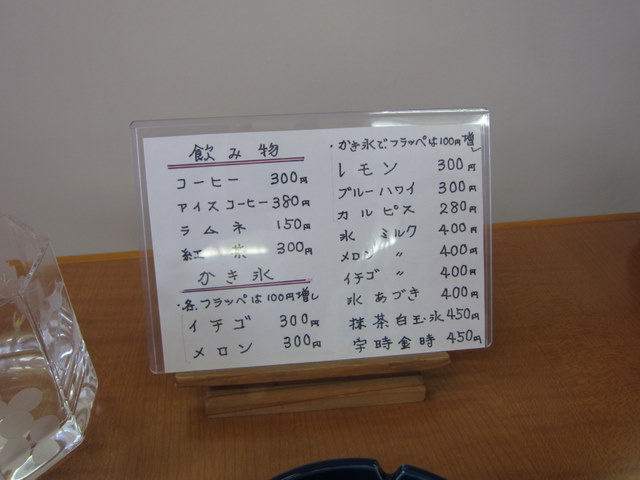 飲み物
コーヒー 300円
アイスコーヒー 380円
ラムネ 150円
紅茶 300円
かき氷
・各、フラッペは100円増し
イチゴ 300円
メロン 300円
・かき氷で、フラッペは100円増し
レモン 300円
ブルーハワイ 300円
カルピス 280円
氷 ミルク 400円
メロン 〃 400円
イチゴ 〃 400円
氷 あづき 400円
抹茶白玉氷 450円
宇時金時 450円